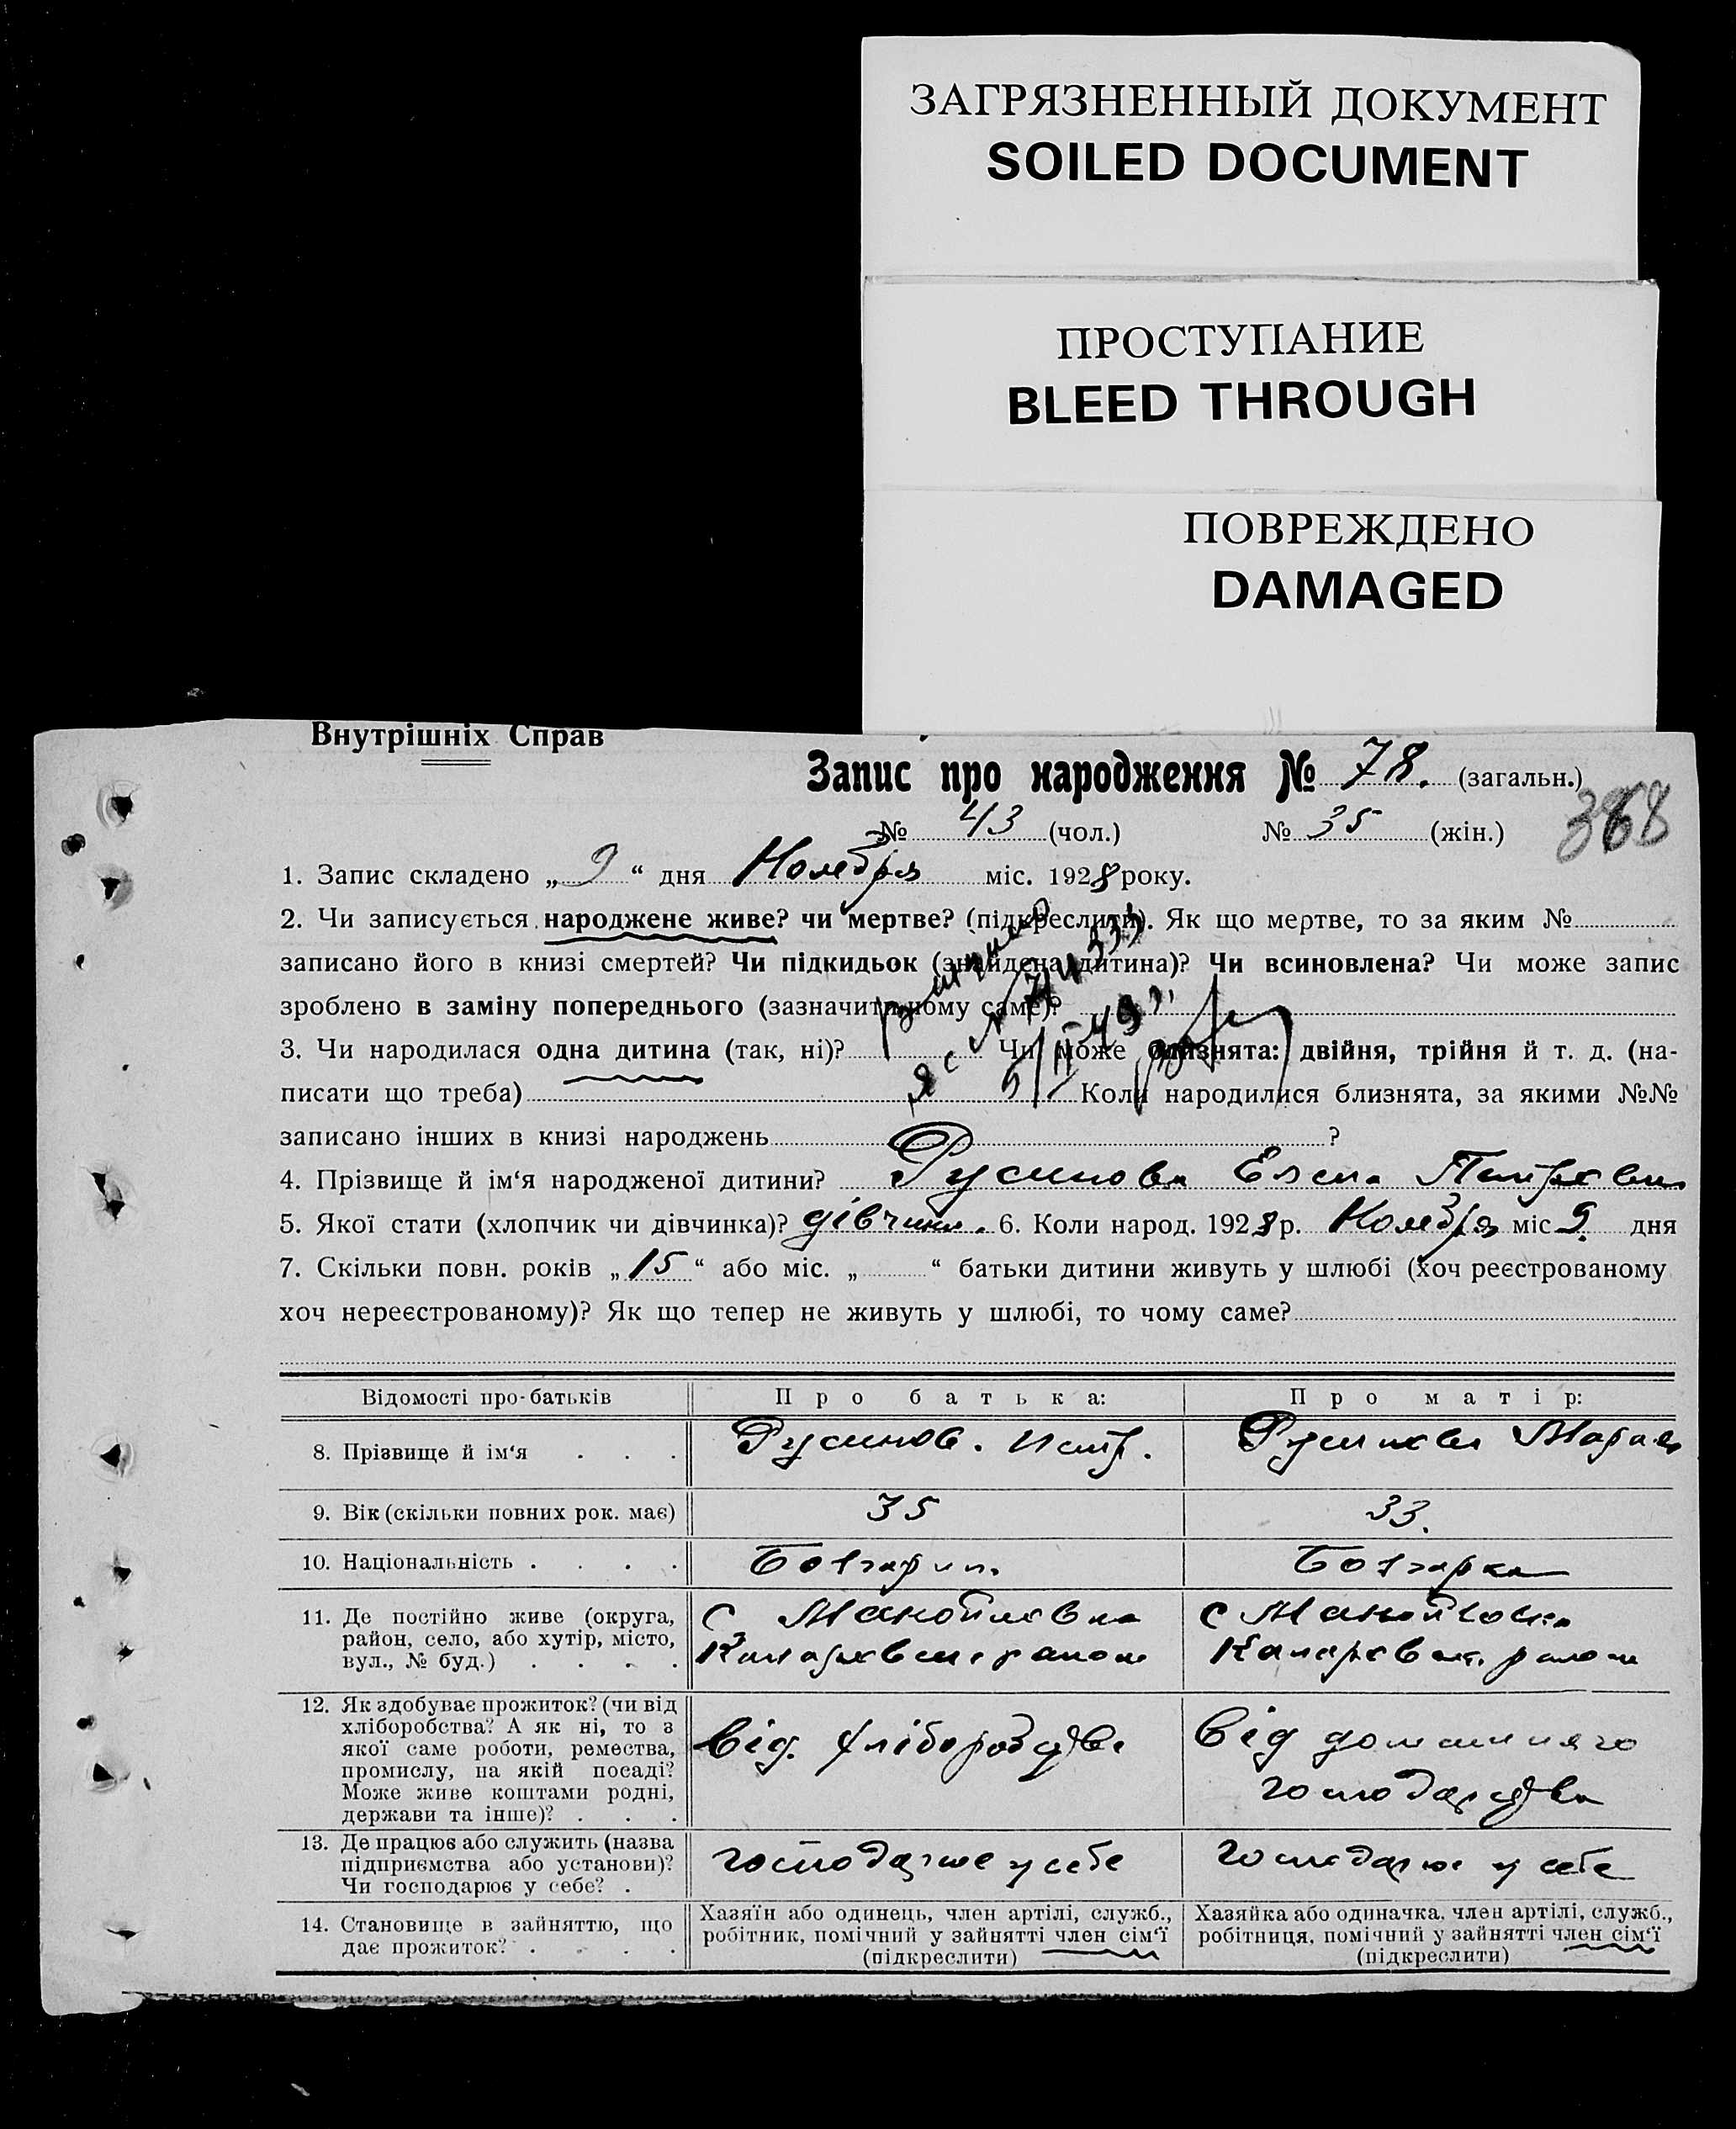 ЗАГРЯЗНЕННЫЙ ДОКУМЕНТ
SOILED DOCUMENT
ПРОСТУПАНИЕ
BLEED THROUGH
ПОВРЕЖДЕНО
DAMAGED
Внутрішніх Справ
Запис про народження № 78. (загальн.)
368
№ 43 (чол.) № 35 (жін.)
1. Запис складено „ 9 “ дня Ноября міс. 1928 року.
2. Чи записується народжене живе? чи мертве? (підкреслити). Як що мертве, то за яким №
записано його в книзі смертей? Чи підкидьок (знайдена дитина)? Чи всиновлена? Чи може запис
зроблено в заміну попереднього (зазначить чому саме)?
3. Чи народилася одна дитина (так, ні)? Чи може близнята: двійня, трійня й т. д. (на-
писати що треба) Коли народилися близнята, за якими №№
записано інших в книзі народжень ?
4. Прізвище й ім‘я народженої дитини? Русинова Елена Петровна
5. Якої стати (хлопчик чи дівчинка)? дівчина. 6. Коли народ. 1928 р. Ноября міс 9. дня
7. Скільки повн. років „ 15 “ або міс. „ “ батьки дитини живуть у шлюбі (хоч реєстрованому
хоч нереєстрованому)? Як що тепер не живуть у шлюбі, то чому саме?
Відомості про батьків Про батька: Про матір:
8. Прізвище й ім‘я . . . Русинов. Петр. Русинова Мария
9. Вік (скільки повних рок. має) 35 33.
10. Національність . . . . Болгарин. Болгарка
11. Де постійно живе (округа, с Манойловка с Манойловка
район, село, або хутір, місто,
вул., № буд.) . . . . район район
12. Як здобуває прожиток? (чи від
хліборобства? А як ні, то з від хліборобства від домашняго
якої саме роботи, ремества,
промислу, на якій посаді? господарства
Може живе коштами родні,
держави та інше)? . . .
13. Де працює або служить (назва
підприємства або установи)? господарює у себе господарює у себе
Чи господарює у себе? .
14. Становище в зайняттю, що Хазяїн або одинець, член артілі, служб., Хазяйка або одиначка, член артілі, служб.,
дає прожиток? . . . . робітник, помічний у зайнятті член сім‘ї робітниця, помічний у зайнятті член сім‘ї
(підкреслити) (підкреслити)